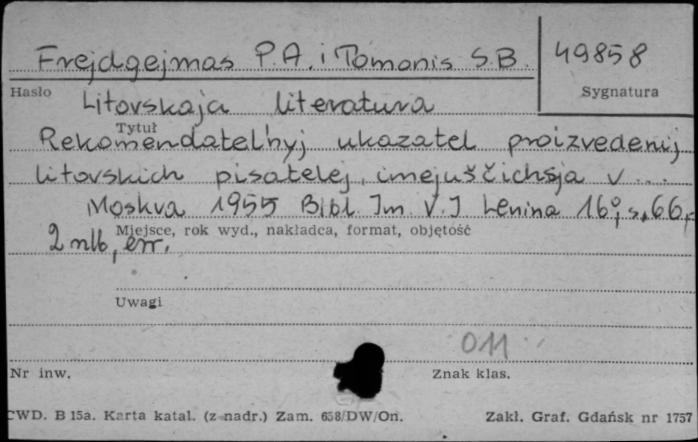 Frejdgejmas P.A. i Tomonis S.B.
49858
Hasło
Sygnatura
Litovskaja literatura
Tytuł
Rekomendatel'nyj ukazatel proizvedenij
litovskich pisatelej, imejuščichsja v ...
Moskva 1955 Bibl. Im. V. I Lenina 16° s. 66,
Miejsce, rok wyd., nakładca, format, objętość
2 nlb, err.
Uwagi
011
Nr inw.
Znak klas.
CWD. B 15a. Karta katal. (z nadr.) Zam. 658/DW/On.
Zakł. Graf. Gdańsk nr 1757